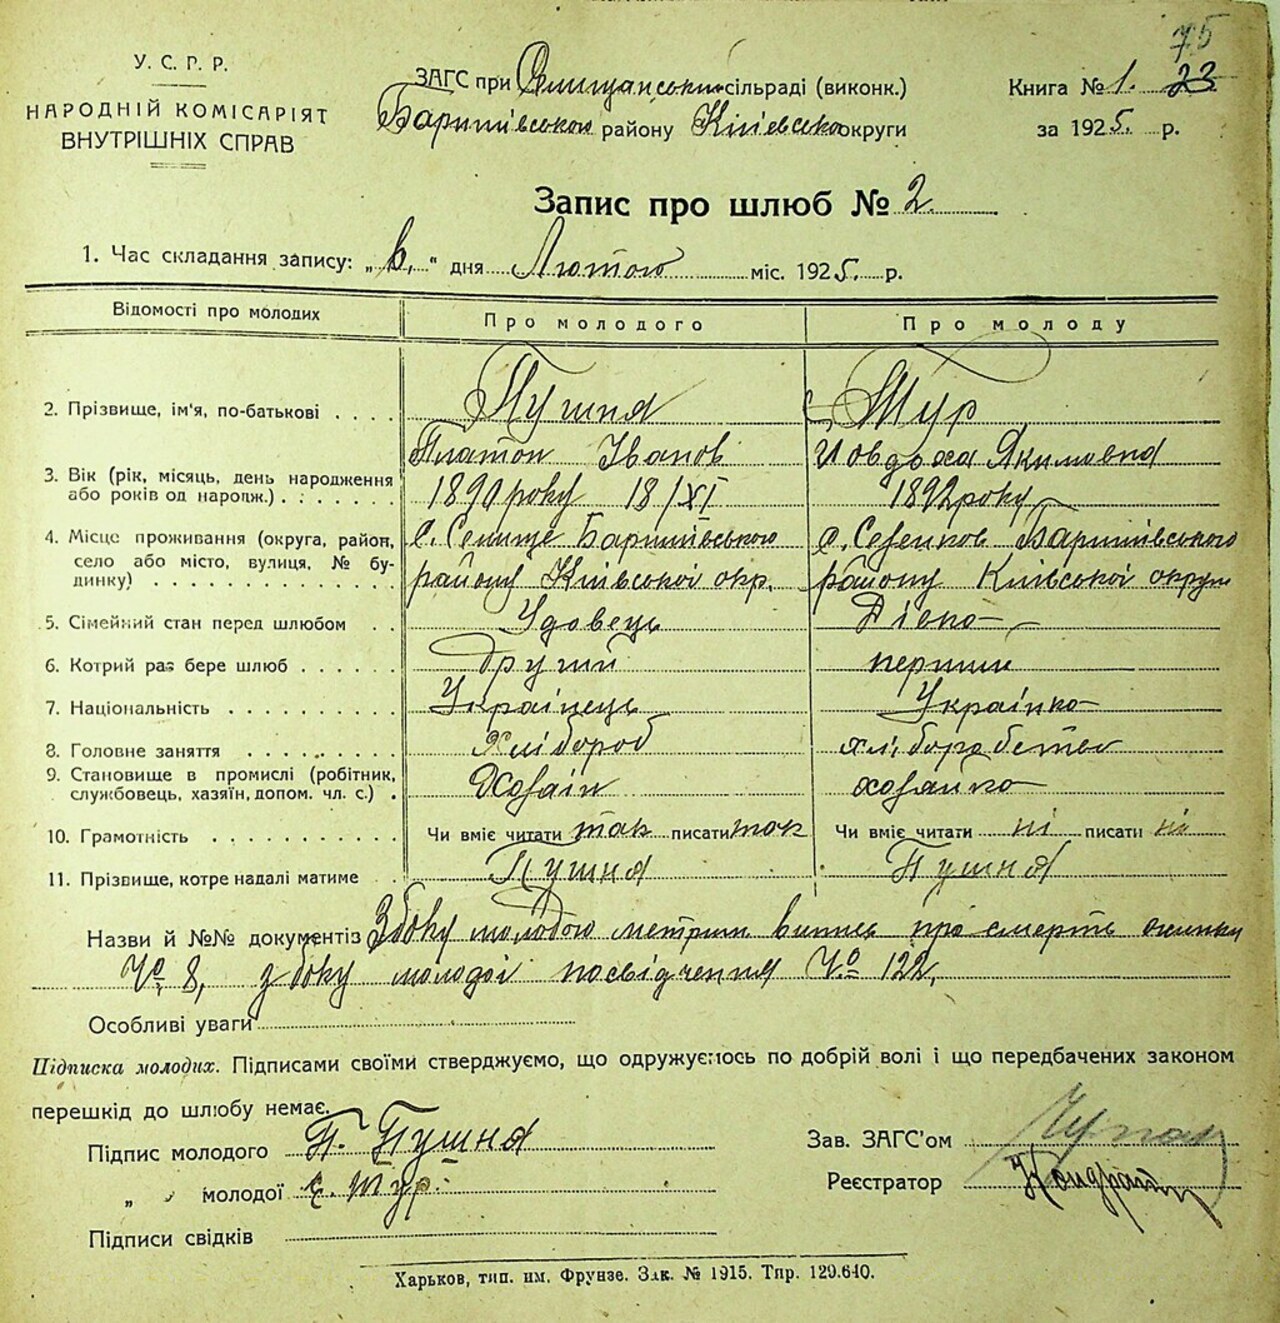 75
У. С. Р. Р.
НАРОДНІЙ КОМІСАРІЯТ
ВНУТРІШНІХ СПРАВ
ЗАГС при Селищанській сільраді (виконк.)
Баришівського району Київської округи
Книга № 1. 23
за 1925. р.
Запис про шлюб № 2.
1. Час складання запису: „6.“ дня Лютого міс. 1925. р.
Відомості про молодих
Про молодого
Про молоду
2. Прізвище, ім'я, по-батькові . . . .
Пушня
Тур
Платон Іванов
Иовдоха Якимовна
3. Вік (рік, місяць, день народження
або років од народж.) . . . . . .
1890 року 18/XI
1892 року
4. Місце проживання (округа, район,
село або місто, вулиця, № бу-
динку) . . . . . . . . . . . . .
с. Селище Баришівського
району Київської окр.
с. Сезенков Баришівського
району Київської округи
5. Сімейний стан перед шлюбом . .
Удовець
Дівка
6. Котрий раз бере шлюб . . . . . .
Другий
перший
7. Національність . . . . . . . . . .
Українець
Українка
8. Головне заняття . . . . . . . . .
Хлібороб
хліборобство
9. Становище в промислі (робітник,
службовець, хазяїн, допом. чл. с.) .
Хозаін
хозяйка
10. Грамотність . . . . . . . . . . .
Чи вміє читати так писати так
Чи вміє читати ні писати ні
11. Прізвище, котре надалі матиме .
Пушня
Пушня
Назви й №№ документів Збоку молодого метрични випись про смерть жинки
№ 8, з боку молодої посвідчення № 122.
Особливі уваги
Підписка молодих. Підписами своїми стверджуємо, що одружуємось по добрій волі і що передбачених законом
перешкід до шлюбу немає.
Підпис молодого П. Пушня
„ „ молодої Є. Тур.
Підписи свідків
Зав. ЗАГС'ом
Реєстратор
Харьков, тип. им. Фрунзе. Зак. № 1915. Тир. 129.640.